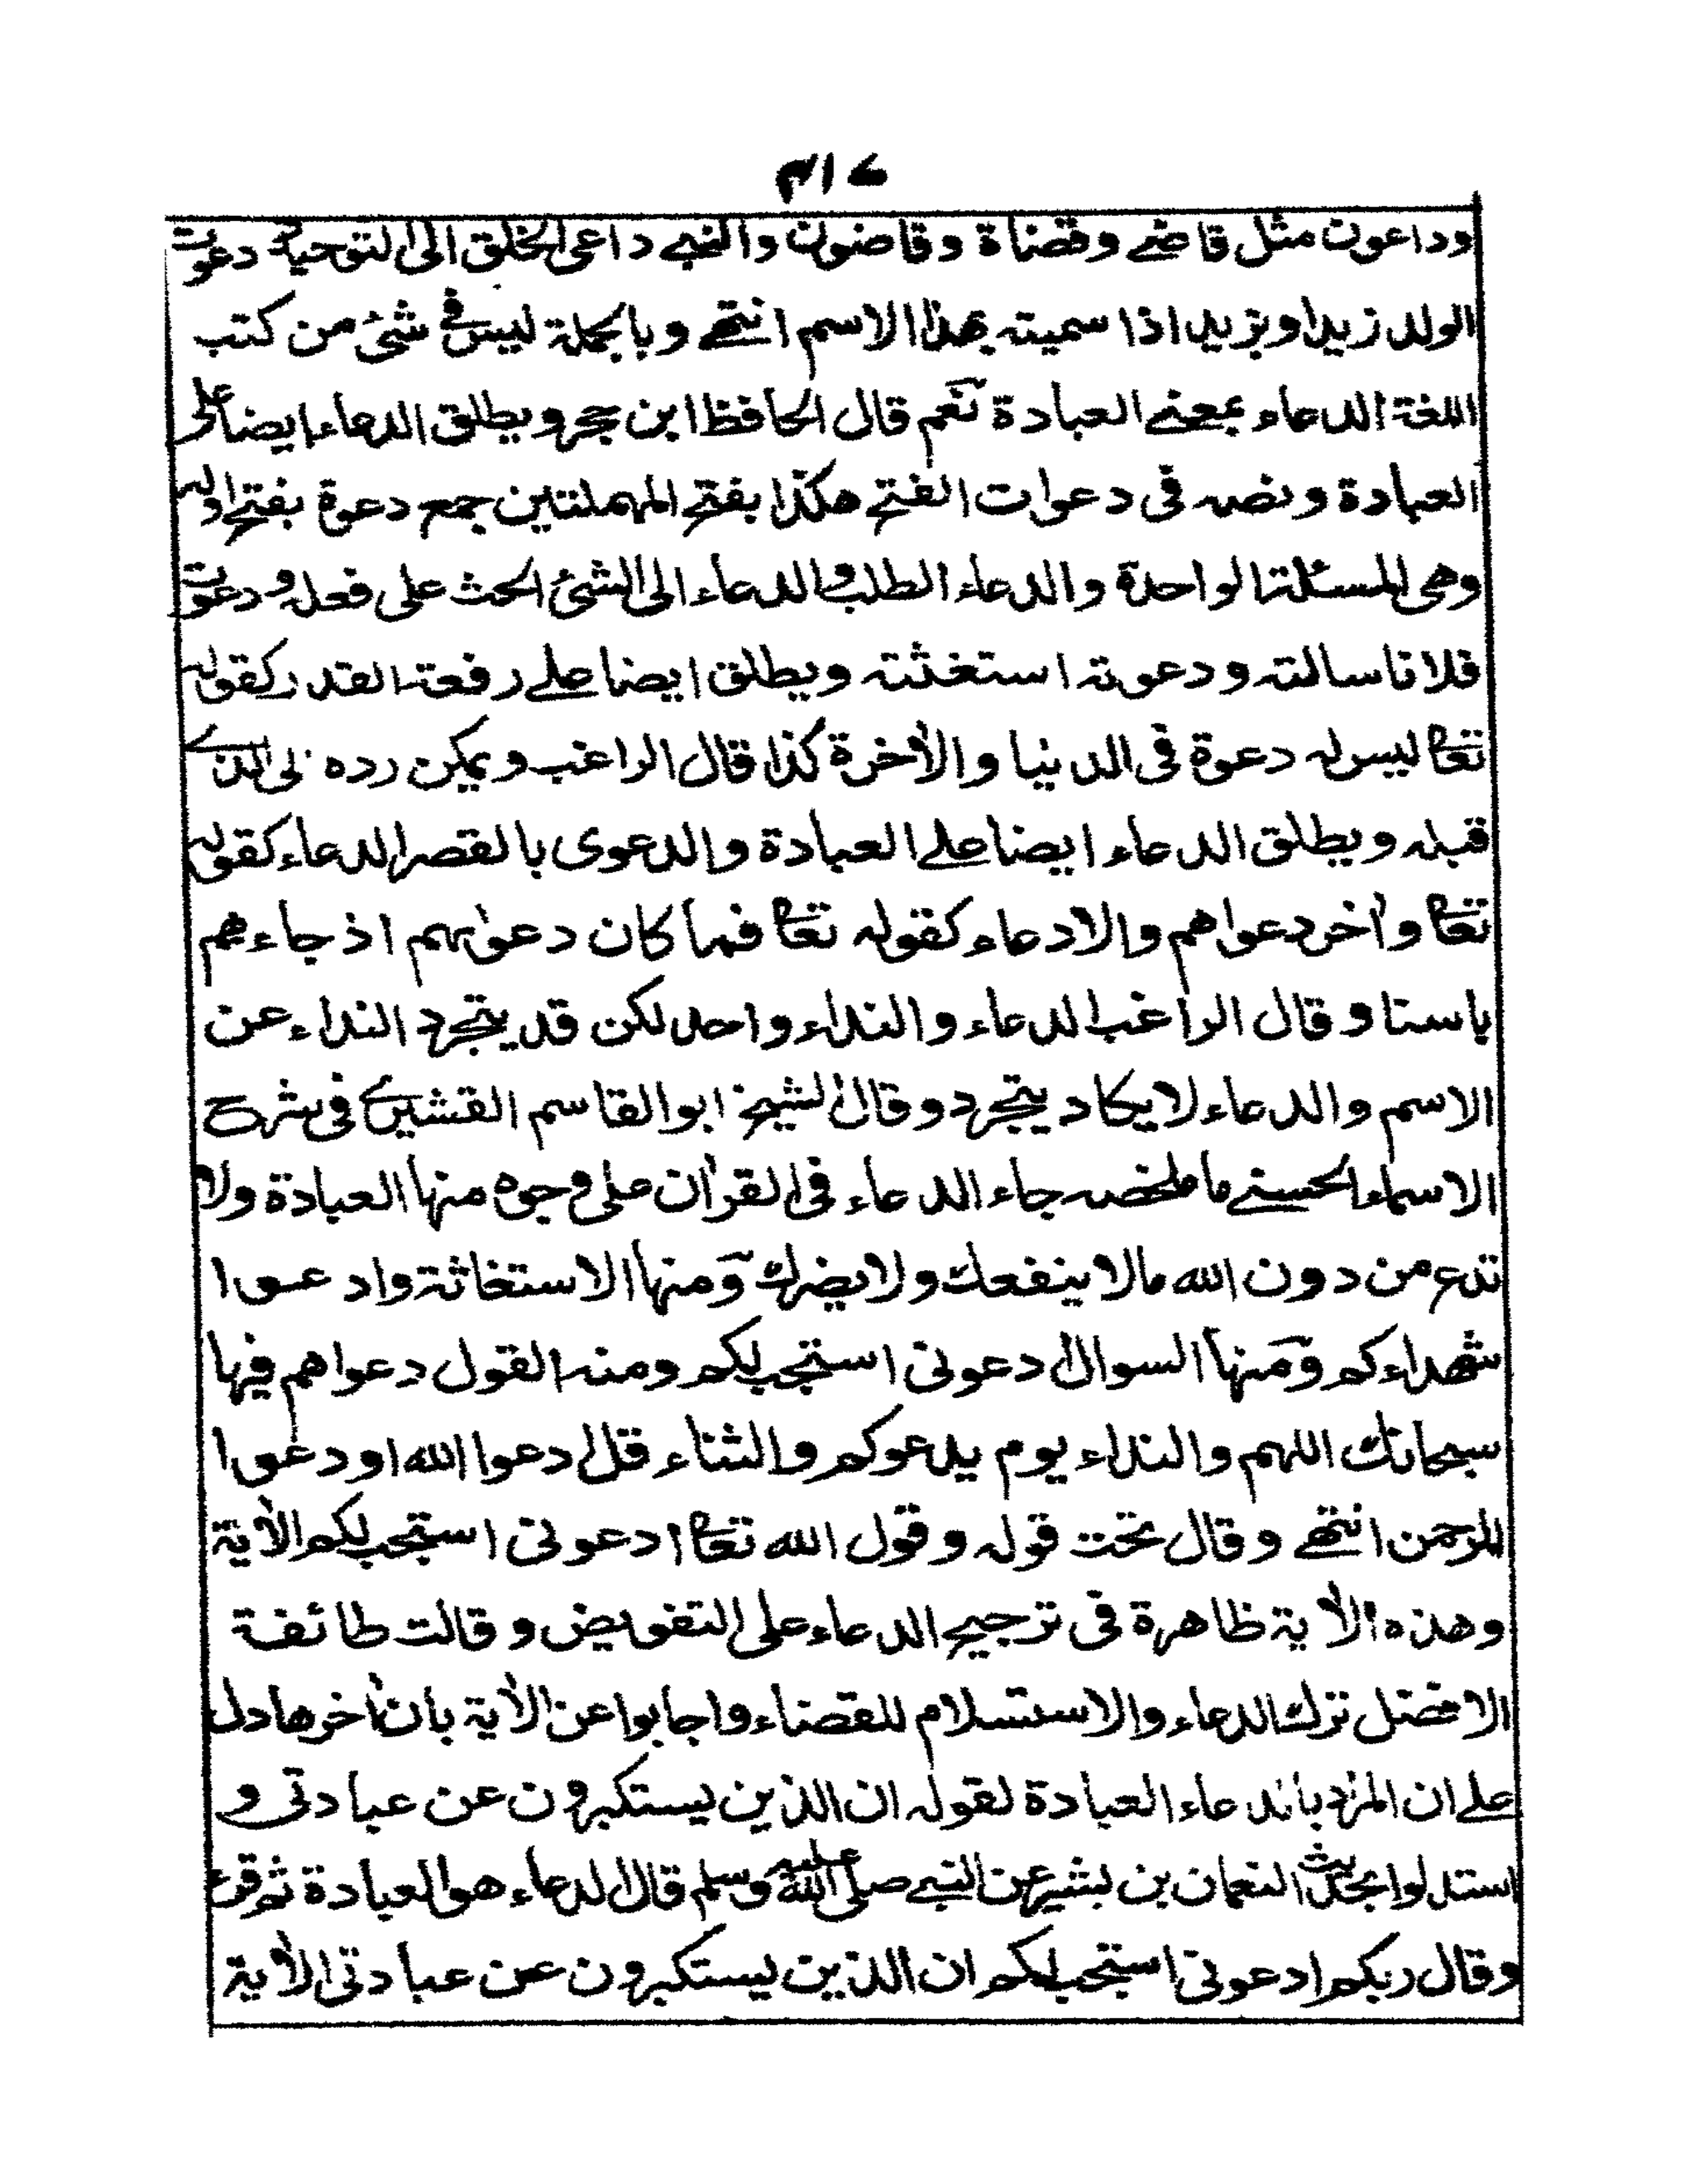 ٤١٧
وداعون مثل قاضے وقضاة وقاضون والنبے داعى الخلق الى التوحيد ودعوت
الولد زيدا وبزيد اذا سميته بهذا الاسم انتهے وبالجملة ليس فى شئ من كتب
اللغة الدعاء بمعنے العبادة نعم قال الحافظ ابن حجر ويطلق الدعاء ايضا على
العبادة ونصه فى دعوات الفتح هكذا بفتح المهملتين جمع دعوة بفتح اوله
وهى المسئلة الواحدة والدعاء الطلب والدعاء الى الشئ الحث على فعله ودعوت
فلانا سالته ودعوته استغثته ويطلق ايضا علے رفعة القدر كقوله
تعالى ليس له دعوة فى الدنيا والاٰخرة كذا قال الراغب ويمكن رده الى الذے
قبله ويطلق الدعاء ايضا علے العبادة والدعوى بالقصر الدعاء كقوله
تعالى واٰخر دعواهم والادعاء كقوله تعالى فما كان دعوٰىهم اذ جاءهم
باسنا وقال الراغب الدعاء والنداء واحد لكن قد يتجرد النداء عن
الاسم والدعاء لا يكاد يتجرد وقال الشيخ ابو القاسم القشيرے فى شرح
الاسماء الحسنے ما ملخصه جاء الدعاء فى القراٰن على وجوه منها العبادة ولا
تدع من دون الله مالا ينفعك ولا يضرك ومنها الاستغاثة وادعوا
شهداءكم ومنها السوال ادعونى استجب لكم ومنه القول دعواهم فيها
سبحانك اللهم والنداء يوم يدعوكم والثناء قل ادعوا الله او دعوا
الرحمن انتهے وقال تحت قوله وقول الله تعالى ادعونى استجب لكم الاٰية
وهذه الاٰية ظاهرة فى ترجيح الدعاء على التفويض وقالت طائفة
الافضل ترك الدعاء والاستسلام للقضاء واجابوا عن الاٰية بان اٰخرها دل
علے ان المراد بالدعاء العبادة لقوله ان الذين يستكبرون عن عبادتى و
استدلوا بحديث النعمان بن بشير عن النبے صلى الله عليه وسلم قال الدعاء هو العبادة ثم قرء
وقال ربكم ادعونى استجب لكم ان الذين يستكبرون عن عبادتى الاٰية